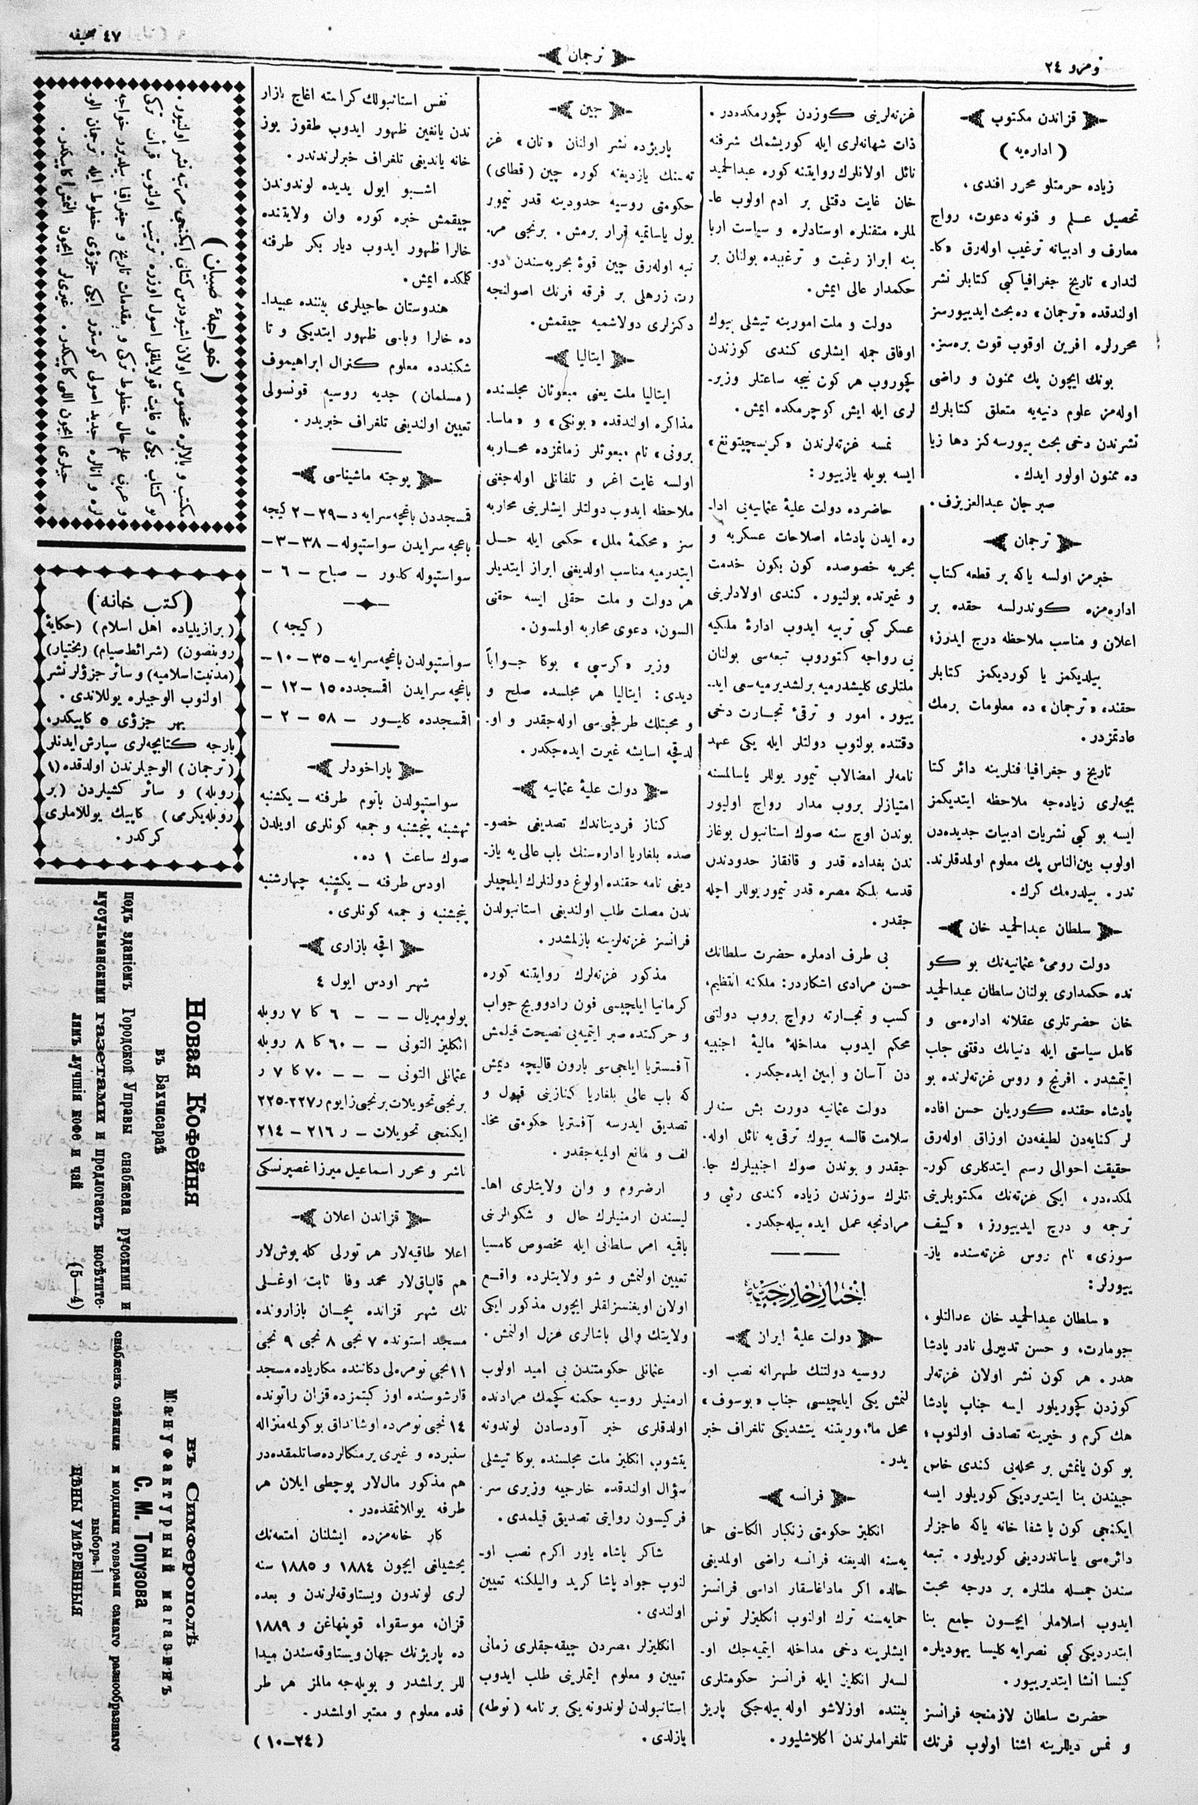 نومرو ٢٤
ترجمان
٤٧ صحيفه
قزاندن مكتوب
( اداره‌يه )
زياده حرمتلو محرر افندى ،
تحصيل علم و فنونه دعوت، رواج
معارف و ادبيانه ترغيب اوله‌رق «كا-
لندار» تاريخ جغرافيا كبى كتابلر نشر
اولندقده «ترجمان» ده بحث ايدييورسز
محررلره افرين اوقوب قوت بره‌سز.
بونك ايچون پك ممنون و راضى
اوله‌مز علوم دنيه‌يه متعلق كتابلرك
نشرندن دخى بحث بيورسه‌كز دها زيا
ده ممنون اولور ايدك.
صبرجان عبدالعزيزف.
ترجمان
خبرمز اولسه ياكه بر قطعه كتاب
اداره‌مزه كوندرلسه حقده بر
اعلان و مناسب ملاحظه درج ايدرز؛
بيلديكمز يا كورديكمز كتابلر
حقنده «ترجمان» ده معلومات برمك
عادتمزدر.
تاريخ و جغرافيا فنلرينه دائر كتا
بچه‌لرى زياده‌جه ملاحظه ايتديكمز
ايسه بو كبى نشريات ادبيات جديده‌دن
اولوب بين‌الناس پك معلوم اولمدقلرند.
ندر. بيلدرمك كرك.
سلطان عبدالحميد خان
دولت رومئ عثمانيه‌نك بو كو
نده حكمدارى بولنان سلطان عبدالحميد
خان حضرتلرى عقلانه اداره‌سى و
كامل سياستى ايله دنيانك دقتنى جلب
ايتمشدر. افرنج و روس غزته‌لرنده بو
پادشاه حقنده كوريلان حسن افاده
لر كنايه‌دن لطيفه‌دن اوزاق اوله‌رق
حقيقت احوالى رسم ايتدكلرى كور-
لمكده‌در. ايكى غزته‌نك مكتوبلرينى
ترجمه و درج ايدييورز؛ «كييف
سوزى» نام روس غزته‌سنده ياز-
ييورلر:
«سلطان عبدالحميد خان عدالتلو،
جومارت، و حسن تدبيرلى نادر پادشا
هدر. هر كون نشر اولان غزته‌لر
كوزدن كچوريلور ايسه جناپ پادشا
هك كرم و خيرينه تصادف اولنوب؛
بو كون يانمش بر محله‌يى كندى خاص
جيبندن بنا ايتديرديكى كوريلور ايسه
ايكنجى كون يا شفا خانه ياكه عاجزلر
دائره‌سى ياساندرديغى كوريلور. تبعه
سندن جمله ملتلره بر درجه محبت
ايدوب اسلاملر ايچون جامع بنا
ايتدرديكى كبى نصرايه كليسا يهوديلره
كنيسا انشا ايتديرييور.
حضرت سلطان لازمنجه فرانسز
و نمس ديللرينه اشنا اولوب فرنك
غزته‌لرينى كوزدن كچورمكده‌در.
ذات شهانه‌لرى ايله كوريشمك شرفنه
نائل اولانلرك روايتنه كوره عبدالحميد
خان غايت دقتلى بر ادم اولوب عا-
لملره متفنلره اوستادلره و سياست اربا
بنه ابراز رغبت و ترغيبده بولنان بر
حكمدار عالى ايمش.
دولت و ملت امورينه تيشلى بيوك
اوفاق جمله ايشلرى كندى كوزندن
كچوروب هر كون نيچه ساعتلر وزير-
لرى ايله ايش كوچرمكده ايمش.
نمسه غزته‌لرندن «كريسچيتونغ»
ايسه بويله يازييور:
حاضرده دولت عليۀ عثمانيه‌يى ادا-
ره ايدن پادشاه اصلاحات عسكريه و
بحريه خصوصده كون بكون خدمت
و غيرتده بولنيور. كندى اولادلرينى
عسكر كبى تربيه ايدوب ادارۀ ملكيه
يى رواجه كتوروب تبعه‌سى بولنان
ملتلرى كليشدرميه برلشديرميه‌سى ايد-
ييور. امور و ترقئ تجارت دخى
دقتنده بولنوب دولتلر ايله يكى عهد
نامه‌لر امضالاب تيمور يوللر ياسالمسنه
امتيازلر بروب مدار رواج اوليور
بوندن اوچ سنه صوك استانبول بوغاز
ندن بغداده قدر و قانقاز حدودندن
قدسه بلكه مصره قدر تيمور يوللر اچله
جقدر.
بى طرف ادملره حضرت سلطانك
حسن مرادى اشكاردر: ملكنه انتظيم،
كسب و تجارته رواج بروب دولتى
محكم ايدوب مداخلۀ ماليۀ اجنبيه
دن آسان و امين ايده‌جكدر.
دولت عثمانيه دورت بش سنه‌لر
سلامت قالسه بيوك ترقى يه نائل اوله.
جقدر و بوندن صوك اجنبيلرك جا-
تلرك سوزندن زياده كندى رئيى و
مرادنجه عمل ايده بيله‌جكدر.
اخبار خارجيه
دولت عليۀ ايران
روسيه دولتنك طهرانه نصب او-
لنمش يكى ايلچيسى جناب «بوسوف»
محل ماءموريتنه يتشديكى تلغراف خبر
يدر.
فرانسه
انكليز حكومتى زنكبار الكاسنى حما
يه‌سنه الديغنه فرانسه راضى اولمديغى
حالده اكر ماداغاسقار اداسى فرانسز
حمايه‌سنه ترك اولنوب انكليزلر تونس
ايشلرينه دخى مداخله ايتميه‌جك او-
لسه‌لر انكليز ايله فرانسز حكومتلرى
بيننده اوزلاشو اوله بيله‌جكى پاريز
تلغراملرندن اكلاشليور.
چين
پاريژده نشر اولنان «تان» غز
ته‌سنك يازديغنه كوره چين (قطاى)
حكومتى روسيه حدودينه قدر تيمور
يول ياساتميه قرار برمش. برنجى مر-
تبه اوله‌رق چين قوۀ بحريه‌سندن دو.
رت زرهلى بر فرقه فرنك اصولنجه
دكزلرى دولاشميه چيقمش.
ايتاليا
ايتاليا ملت يعنى مبعوثان مجلسنده
مذاكره اولندقده «بونكى» و «ماسا-
برونى» نام مبعوثلر زمانمزده محاربه
اولسه غايت اغر و تلفاتلى اوله‌جغنى
ملاحظه ايدوب دولتلر ايشلرينى محاربه
سز «محكمۀ ملل» حكمى ايله حل
ايتدرميه مناسب اولديغنى ابراز ايتديلر
هر دولت و ملت حقلى ايسه حقنى
السون، دعوى محاربه اولمسون.
وزير «كرسپى» بوكا جواباً
ديدى: ايتاليا هر مجلسده صلح و
و محبتلك طرفجى‌سى اوله‌جقدر و او.
لدقچه اسايشه غيرت ايده‌جكدر.
دولت عليۀ عثمانيه
كناز فرديناندك تصديقى خصو-
صده بلغاريا اداره‌سنك باب عالى يه ياز-
ديغى نامه حقنده اولوغ دولتلرك ايلچيلر
ندن مصلحت طلب اولنديغى استانبولدن
فرانسز غزته‌لرينه يازلمشدر.
مذكور غزته‌لرك روايتنه كوره
كرمانيا ايلچيسى فون رادوويچ جواب
و حركتنده صبر ايتميه‌يى نصيحت قيلمش
آفستريا ايلچى‌سى بارون قاليچه ديمش
كه باب عالى بلغاريا كنازينى قبول و
تصديق ايدرسه آفستريا حكومتى مخا-
لف و مانع اولميه‌جقدر.
ارضروم و وان ولايتلرى اها-
ليسندن ارمنيلرك حال و شكوالرنى
باقيه امر سلطانى ايله مخصوص كامسيا
تعيين اولنمش و شو ولايتلرده واقع
اولان اويغنسزلقلر ايچون مذكور ايكى
ولايتك والى باشالرى عزل اولنمش.
عثمانلى حكومتندن بى اميد اولوب
ارمنيلر روسيه حكمنه كچمك مرادنده
اولدقلرى خبر آودسادن لوندونه
يتشوب. انكليز ملت مجلسنده بوكا تيشلى
سؤال اولندقده خارجيه وزيرى سر-
فركيسون روايتى تصديق قيلمدى.
شاكر باشاه ياور اكرم نصب او-
لنوب جواد پاشا كريد واليلكنه تعيين
اولندى.
انكليزلر مصردن چيقه‌جقلرى زمانى
تعيين و معلوم ايتملرينى طلب ايدوب
استانبولدن لوندونه يكى بر نامه (نوطه)
يازلدى.
نفس استانبولك كراسته اغاج بازار
ندن يانغين ظهور ايدوب طقوز يوز
خانه ياندیغى تلغراف خبرلرندندر.
اشبو ايول يديده لوندوندن
چيقمش خبره كوره وان ولايتنده
خالرا ظهور ايدوب ديار بكر طرفنه
كلمكده ايمش.
هندوستان حاجيلرى بيننده عبيدا-
ده خالرا وباسى ظهور ايتديكى و تا
شكندده معلوم كنرال ابراهيموف
(مسلمان) جديه روسيه قونسولى
تعيين اولنديغى تلغراف خبريدر.
پوچته ماشيناسى
قمسجددن باغچه سرايه د-٢٩-٢ كيجه
باغچه سرايدن سواستپوله -٣٨-٣-
سواستپوله كلور - صباح -٦-
( كيجه )
سواستپولدن باغچه سرايه -٣٥-١٠-
باغچه سرايدن اقمسجدده ١٥-١٢-
اقمسجدده كليور -٥٨-٢-
پاراخودلر
سواستپولدن باتوم طرفنه - يكشنبه
نهشبنه پنجشنبه و جمعه كونلرى اويلدن
صوك ساعت ١ ده.
اودس طرفنه - يكشنبه چهارشنبه
پنجشنبه و جمعه كونلرى.
اقچه بازارى
شهر اودس ايول ٤
يولومپريال - - - ٦ كا ٧ روبله
انكليز التونى - - ٦٠ كا ٨ روبله
عثمانلى التونى - - - ٧٠ كا ٧ ر
برنجى تحويلات برنجى زايوم ر٢٢٧-٢٢٥
ايكنجى تحويلات - ر ٢١٦-٢١٤
ناشر و محرر اسماعيل ميرزا غصپرنسكى
قزاندن اعلان
اعلا طاقيه‌لار هر تورلى كله پوش‌لار
هم قالپاق‌لار محمد وفا ثابت اوغلى
نك شهر قزانده پچان بازارونده
مسجد استونده ٧ نجى ٨ نجى ٩ نجى
١١نجى نومره‌لى دكاننده مكارياده مسجد
قارشوسنده اوز كبتمزده قزان راتونده
١٤ نجى نومرده اوشانداق بوكولمه‌منزاله
سنبرده و غيرى يرمنكالرده صاتلمقده‌در
هم مذكور مال‌لار پوچطى ايلان هر
طرفه يوللانمقده‌در.
كار خانه‌مزده ايشلنان امتعه‌نك
يخشيلقى ايچون ١٨٨٤ و ١٨٨٥ سنه
لرى لوندون ويستاوقه‌لرندن و بعده
قزان، موسقواء قوپنهاغن و ١٨٨٩
ده پاريژنك جهان ويستاوقه‌سندن ميدا
للر برلمشدر و بويله‌جه مالمز هر طر
فده معلوم و معتبر اولمشدر.
(٢٤-١٠)
(خواجۀ صبيان)
(كتب خانه)
(برازيلياده اهل اسلام) (حكايۀ
روبنصون) (شرائط صيام) (بختيار)
(مدنيت اسلاميه) و سائر جزؤلر نشر
اولنوب الوجيلره يوللاندى.
بهر جزؤى ٥ كاپيكدر،
بارچه كتابچه‌لرى سپارش ايدنلر
(ترجمان) الوجيلرندن اولدقده (١
روبله) و سائر كشيلردن (بر
روبله‌يكرمى) كاپيك يوللاملارى
كركدر.
Новая Кофейня
въ Бахчисараѣ
подъ зданіемъ Городской Управы снабжена русскими и
мусульманскими газетами и предлагаетъ посѣтите-
лямъ лучшія кофе и чай
(5—4)
въ Симферополѣ
Мануфактурный магазинъ
С. М. Топузова
снабженъ свѣжими и модными товарами самаго разнообразнаго
выбора
ЦѢНЫ УМѢРЕННЫЯ